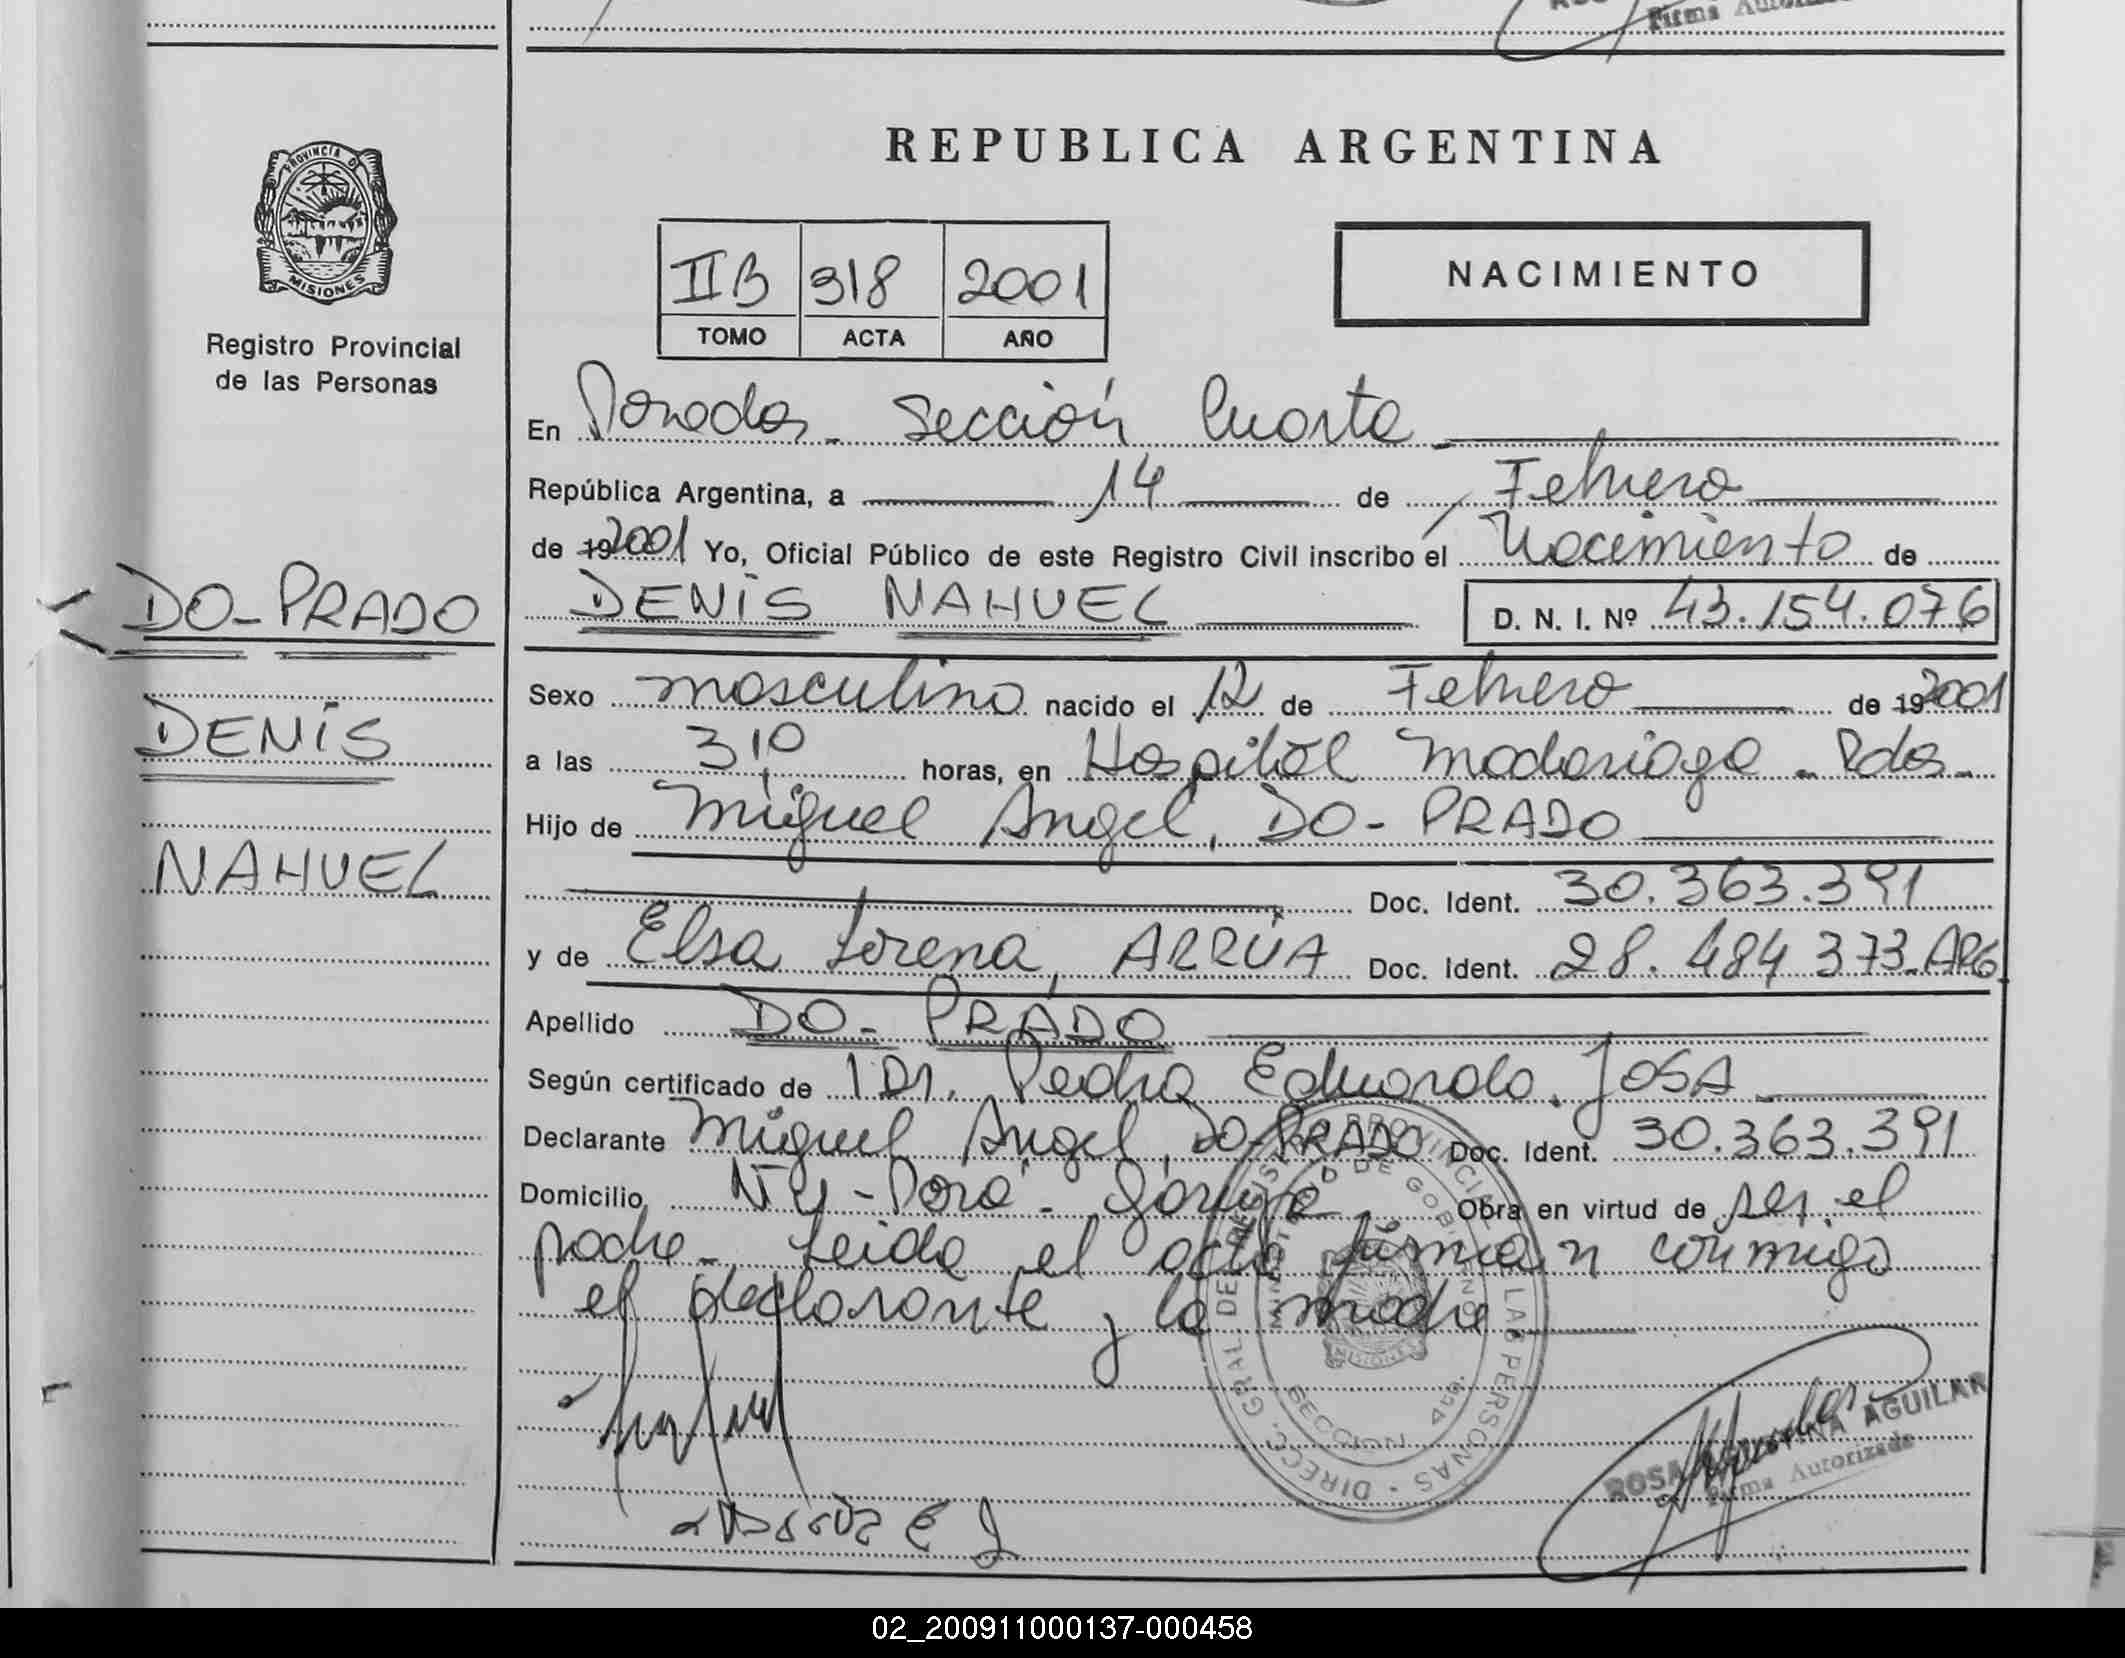 Firma
REPUBLICA ARGENTINA
PROVINCIA DE
MISIONES
Registro Provincial
de las Personas
IIB 318 2001
TOMO ACTA AÑO
NACIMIENTO
En Posadas - Sección Cuarta
República Argentina, a 14 de Febrero
de 19 2001 Yo, Oficial Público de este Registro Civil inscribo el Nacimiento de
DENIS NAHUEL D. N. I. Nº 43.154.076
DO-PRADO
DENIS
NAHUEL
Sexo masculino nacido el 12 de Febrero de 19 2001
a las 3,10 horas, en Hospital Madariaga - Pdas -
Hijo de Miguel Angel, DO-PRADO
Doc. Ident. 30.363.391
y de Elsa Lorena, ARRÚA Doc. Ident. 28.484.373-ARG
Apellido DO-PRADO
Según certificado de Dr. Pedro Eduardo JOSA
Declarante Miguel Angel, DO-PRADO Doc. Ident. 30.363.391
Domicilio, Garupá Obra en virtud de ser el
padre - Leida el acta firman conmigo
el declarante y la madre.
DIRECC. GRAL DE REGISTRO PROVINCIAL DE LAS PERSONAS
MINISTERIO DE GOBIERNO
MISIONES
SECCION 4ta.
ROSA AGUILAR
Firma Autorizada
02_200911000137-000458